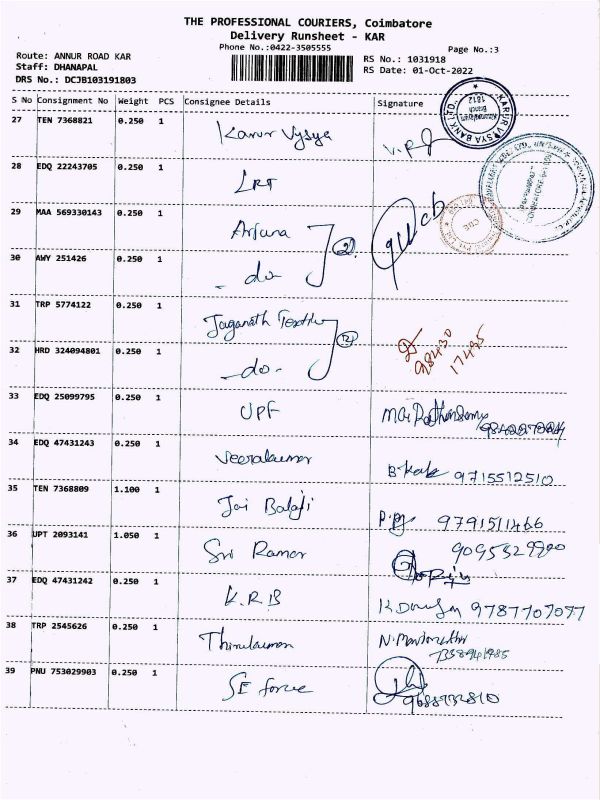 THE PROFESSIONAL COURIERS, Coimbatore
Delivery Runsheet - KAR
Phone No.:0422-3505555
Page No.:3
Route: ANNUR ROAD KAR
Staff: DHANAPAL
DRS No.: DCJB103191803
RS No.: 1031918
RS Date: 01-Oct-2022
S No Consignment No Weight PCS Consignee Details Signature
27 TEN 7368821 0.250 1 Karur Vysya
28 EDQ 22243705 0.250 1 LRT
29 MAA 569330143 0.250 1 Arjuna
30 AWY 251426 0.250 1 - do -
2
31 TRP 5774122 0.250 1 Jaganath Textile
32 HRD 324094801 0.250 1 - do -
2
98430
17495
33 EDQ 25099795 0.250 1 UPF
34 EDQ 47431243 0.250 1 Veerakumar 9715512510
35 TEN 7368809 1.100 1 Jai Balaji 9791511466
36 UPT 2093141 1.050 1 Sri Raman 9095329900
37 EDQ 47431242 0.250 1 K.R.B 9787707077
38 TRP 2545626 0.250 1 Thirukumaran
39 PNU 753029903 0.250 1 SE force 9688732810
KARUR VYSYA BANK LTD.,
Branch
1812